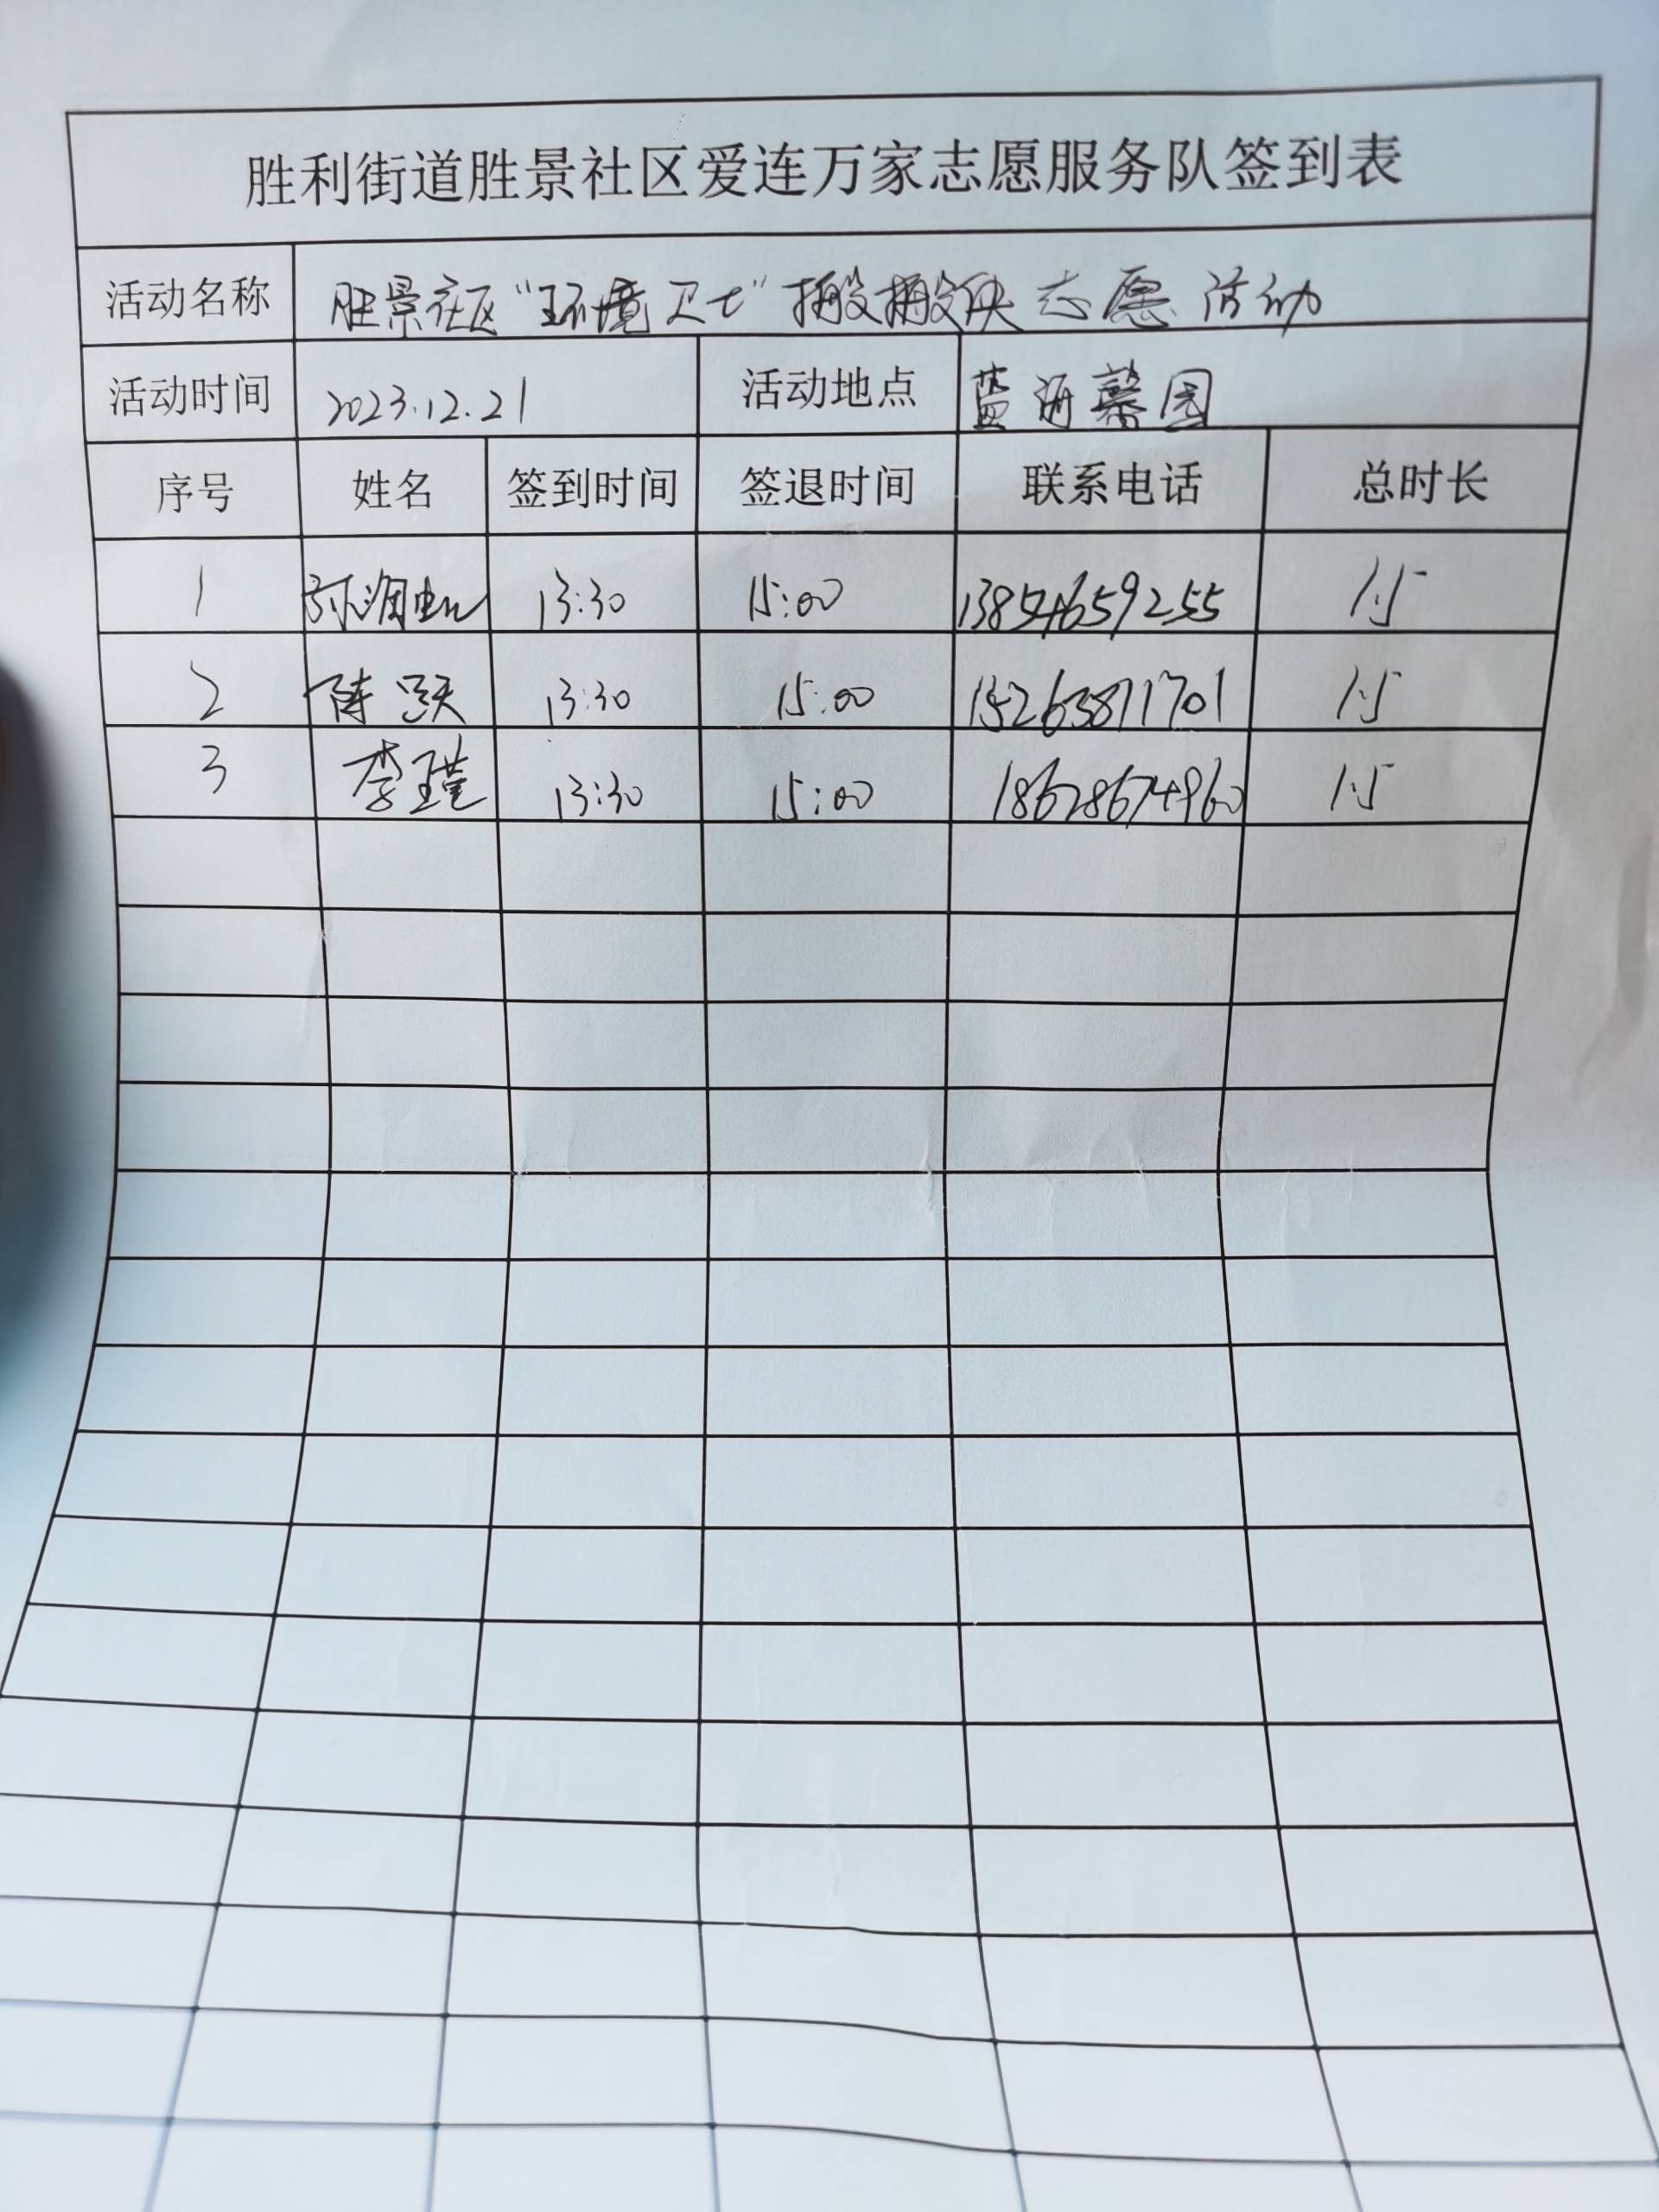 胜利街道胜景社区爱连万家志愿服务队签到表
活动名称 胜景社区“环境卫士”搬搬快志愿活动
活动时间 2023.12.21 活动地点 蓝海馨园
序号 姓名 签到时间 签退时间 联系电话 总时长
1 13:30 15:00 13854659255 1.5
2 陈跃 13:30 15:00 15263871701 1.5
3 李瑾 13:30 15:00 18678674960 1.5